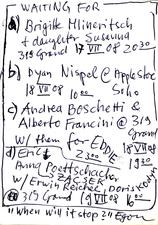 WAITING FOR
a) Brigitte Mlineritsch
+ daughter Susanna
319 Grand 17 VII 08 2030
b) Dyan Nispel @ Apple Store
18 VII 08 16⁰⁰ Soho
c) Andrea Boschetti &
Alberto Francini @ 319 Grand
w/ them for EDDIE 18 VII 08
d) Eric 23⁰⁰ 19³⁰
Anna Poettschacher
ZACSER
w/ Erwin Reichel, Doris
@ 319 Grand 19 VII 08 18⁰⁰
"When will it stop?" Egon